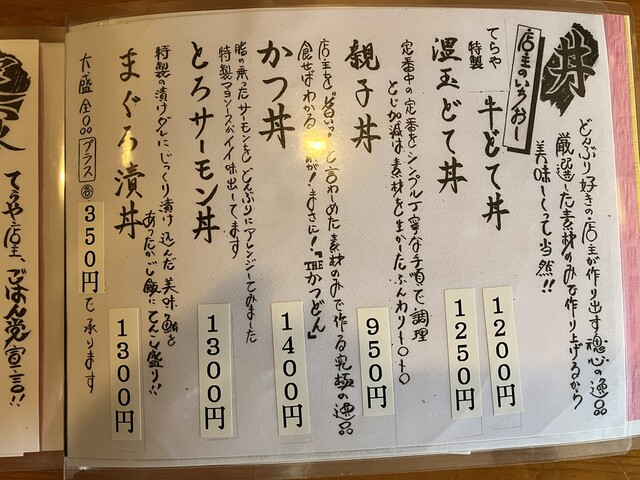 丼
どんぶり好きの店主が作り出す魂心の逸品
厳選した素材のみで作り上げるから
美味しくって当然!!
店主のいちおし
てらや
特製
牛どて丼
1200円
温玉どて丼
1250円
定番中の定番をシンプル丁寧な手順で調理
とじ加減は素材を生かしたふんわりトロトロ
親子丼
950円
店主を
と言わしめた素材のみで作る究極の逸品
食せばわかる
まさに!『THEかつどん』
かつ丼
1400円
脂の乗ったサーモンをどんぶりにアレンジしてみました
特製マヨソースがイイ味出してます
とろサーモン丼
1300円
特製の漬けダレにじっくり漬け込んだ美味鮪を
あったかご飯にてんこ盛り!!
まぐろ漬丼
1300円
大盛 全品 プラス 各 350円で承ります
てらや店主、ごはん党宣言!!